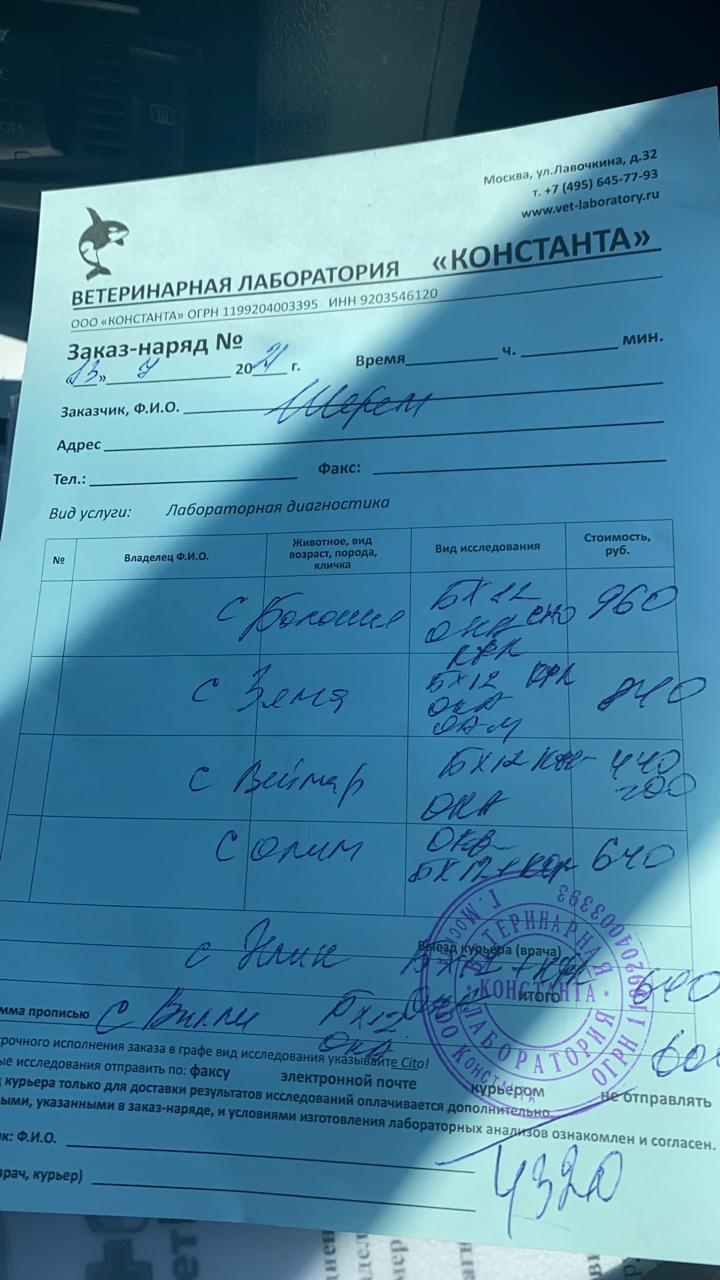 Москва, ул.Лавочкина, д.32
т. +7 (495) 645-77-93
www.vet-laboratory.ru
ВЕТЕРИНАРНАЯ ЛАБОРАТОРИЯ «КОНСТАНТА»
ООО «КОНСТАНТА» ОГРН 1199204003395 ИНН 9203546120
Заказ-наряд №
«13» 7 2021 г. Время ч. мин.
Заказчик, Ф.И.О.
Адрес
Тел.: Факс:
Вид услуги: Лабораторная диагностика
№ Владелец Ф.И.О. Животное, вид возраст, порода, кличка Вид исследования Стоимость, руб.
с БХ12 960
ОКА
с Зема БХ12 КФК 840
ОКА
ОАМ
с Веймар БХ12 440
ОКА 200
с Олим ОКА 640
БХ12+
Выезд курьера (врача)
с БХ12+ 640
итого
мма прописью с Вилли БХ12 600
ОКА
рочного исполнения заказа в графе вид исследования указывайте Cito!
ые исследования отправить по: факсу электронной почте курьером не отправлять
д курьера только для доставки результатов исследований оплачивается дополнительно.
ыми, указанными в заказ-наряде, и условиями изготовления лабораторных анализов ознакомлен и согласен.
ик: Ф.И.О.
врач, курьер)
4320
ВЕТЕРИНАРНАЯ ЛАБОРАТОРИЯ
* КОНСТАНТА *